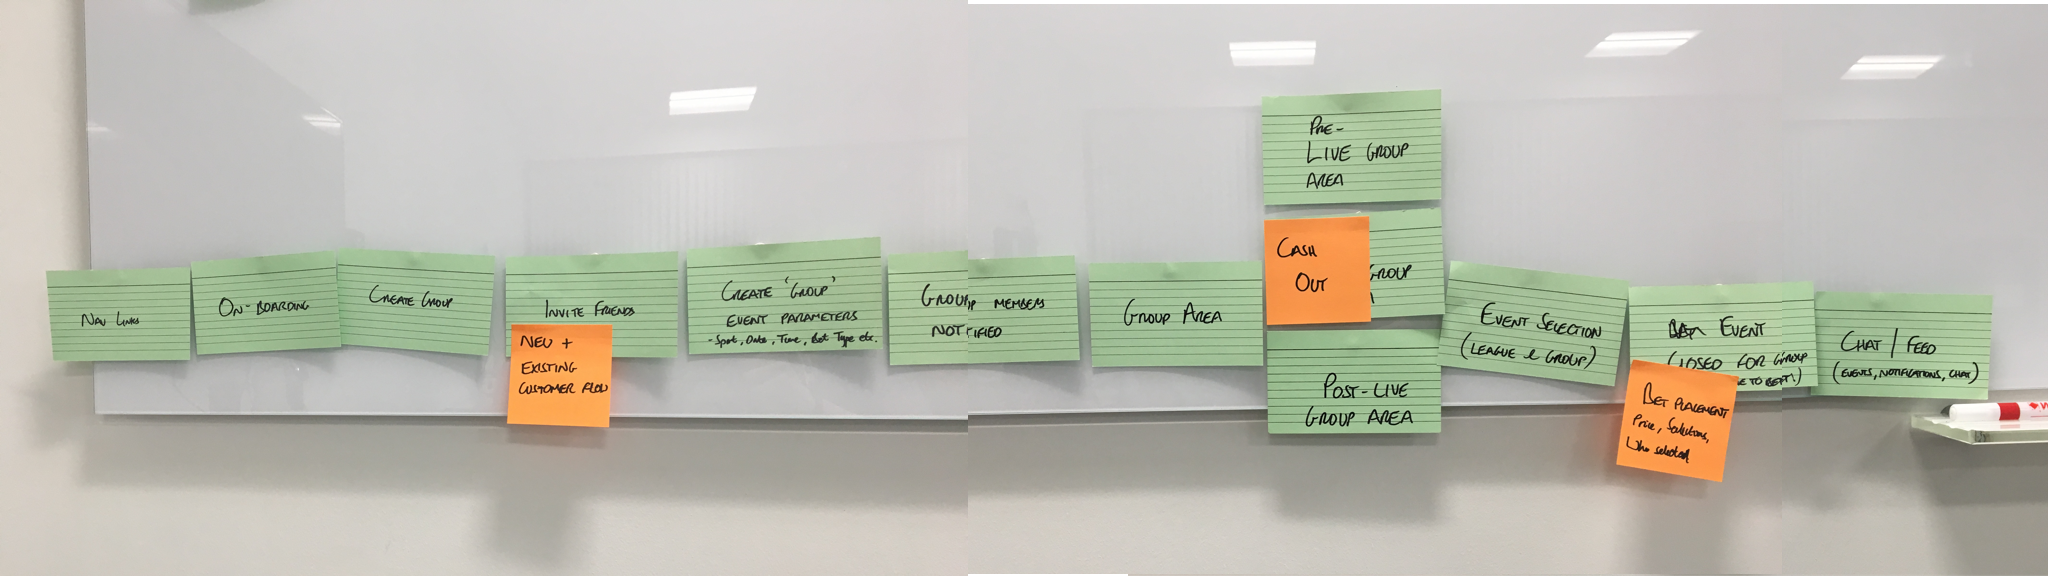 NAV LINKS
ON-BOARDING
CREATE GROUP
INVITE FRIENDS
NEW +
EXISTING
CUSTOMER FLOW
CREATE 'GROUP'
EVENT PARAMETERS
- Sport, Date, Time, Bet Type etc.
GROUP MEMBERS
NOTIFIED
GROUP AREA
PRE-
LIVE GROUP
AREA
CASH
OUT
GROUP
POST-LIVE
GROUP AREA
EVENT SELECTION
(LEAGUE & GROUP)
EVENT
CLOSED FOR GROUP
TO BET!)
BET PLACEMENT
Price, Selections,
Who selected
CHAT / FEED
(EVENTS, NOTIFICATIONS, CHAT)